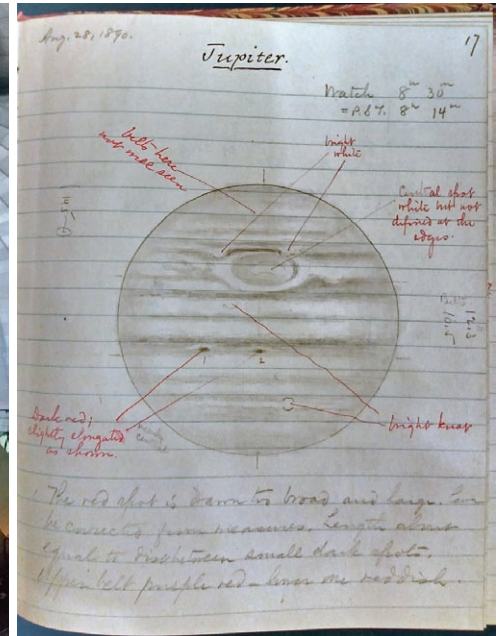 Aug. 28, 1890.
17
Jupiter.
Watch 8h 30m
= P.S.T. 8h 14m
belts here
not well seen
bright
white
Central spot
white but not
defined at the
edges.
1
2
Dark red;
slightly elongated
as shown.
nearly
bright knot
The red spot is drawn too broad and large. Can
be corrected from measures. Length about
equal to dis between small dark spots.
Upper belt purple red – lower one reddish.